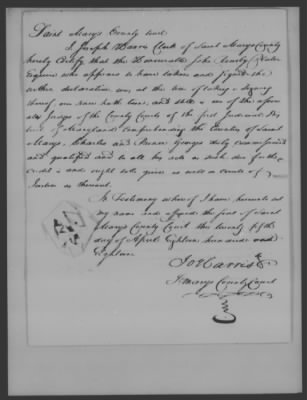 Saint Marys County Sct
I Joseph Harris Clerk of Saint Marys County
hereby Certify that the Honourable John Key
Esquire who appears to have taken and signed the
within declaration was at the time of taking & signing
thereof and now both here, and still is one of the associate
Judges of the County Courts of the first Judicial Dis
trict of Maryland comprehending the Counties of Saint
Marys, Charles and Prince Georges duly commissioned
and qualified and to all his acts as such due faith
credit and ought to be given as well in courts of
Justice as thereout.
In Testimony whereof I have hereunto set
my name and affixed the seal of Saint
Marys County Court this twenty fifth
day of April Eighteen hundred and
Eighteen
Jo Harris Clk
St Marys County Court